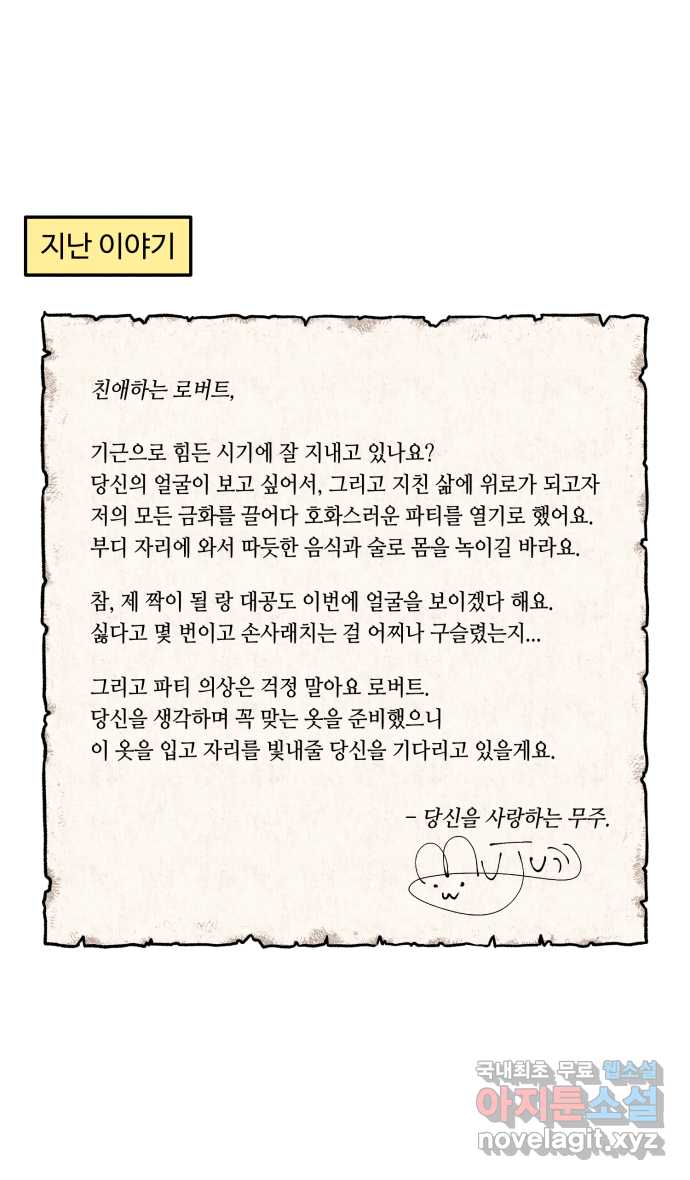 지난 이야기
친애하는 로버트,
기근으로 힘든 시기에 잘 지내고 있나요?
당신의 얼굴이 보고 싶어서, 그리고 지친 삶에 위로가 되고자
저의 모든 금화를 끌어다 호화스러운 파티를 열기로 했어요.
부디 자리에 와서 따듯한 음식과 술로 몸을 녹이길 바라요.
참, 제 짝이 될 랑 대공도 이번에 얼굴을 보이겠다 해요.
싫다고 몇 번이고 손사래치는 걸 어찌나 구슬렸는지...
그리고 파티 의상은 걱정 말아요 로버트.
당신을 생각하며 꼭 맞는 옷을 준비했으니
이 옷을 입고 자리를 빛내줄 당신을 기다리고 있을게요.
- 당신을 사랑하는 무주.
국내최초 무료 웹소설
아지툰소설
novelagit.xyz